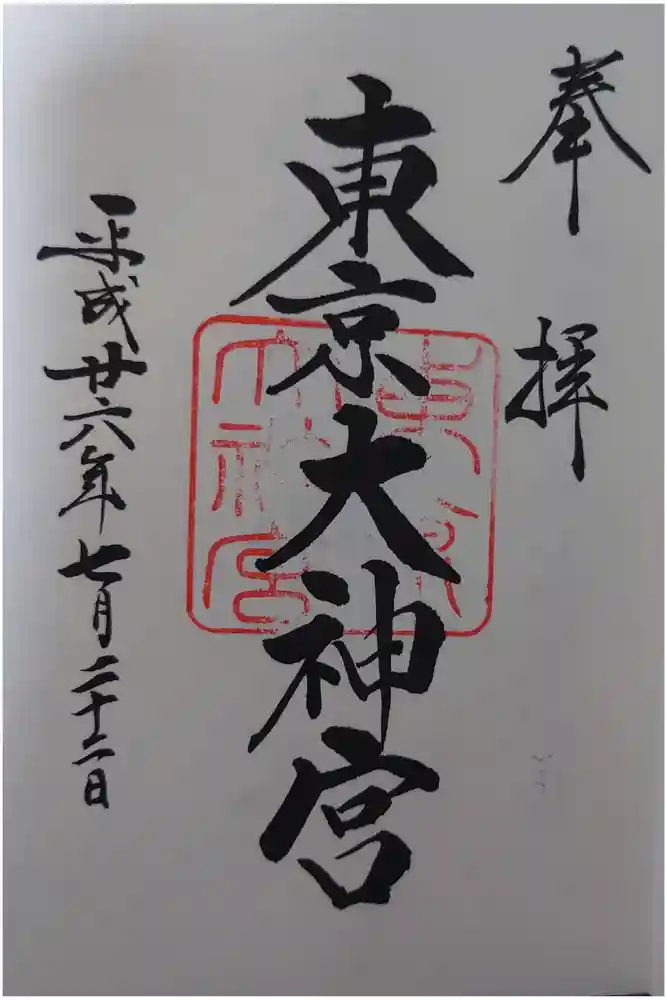 奉拝
東京大神宮
平成廿六年七月二十二日
東京大神宮